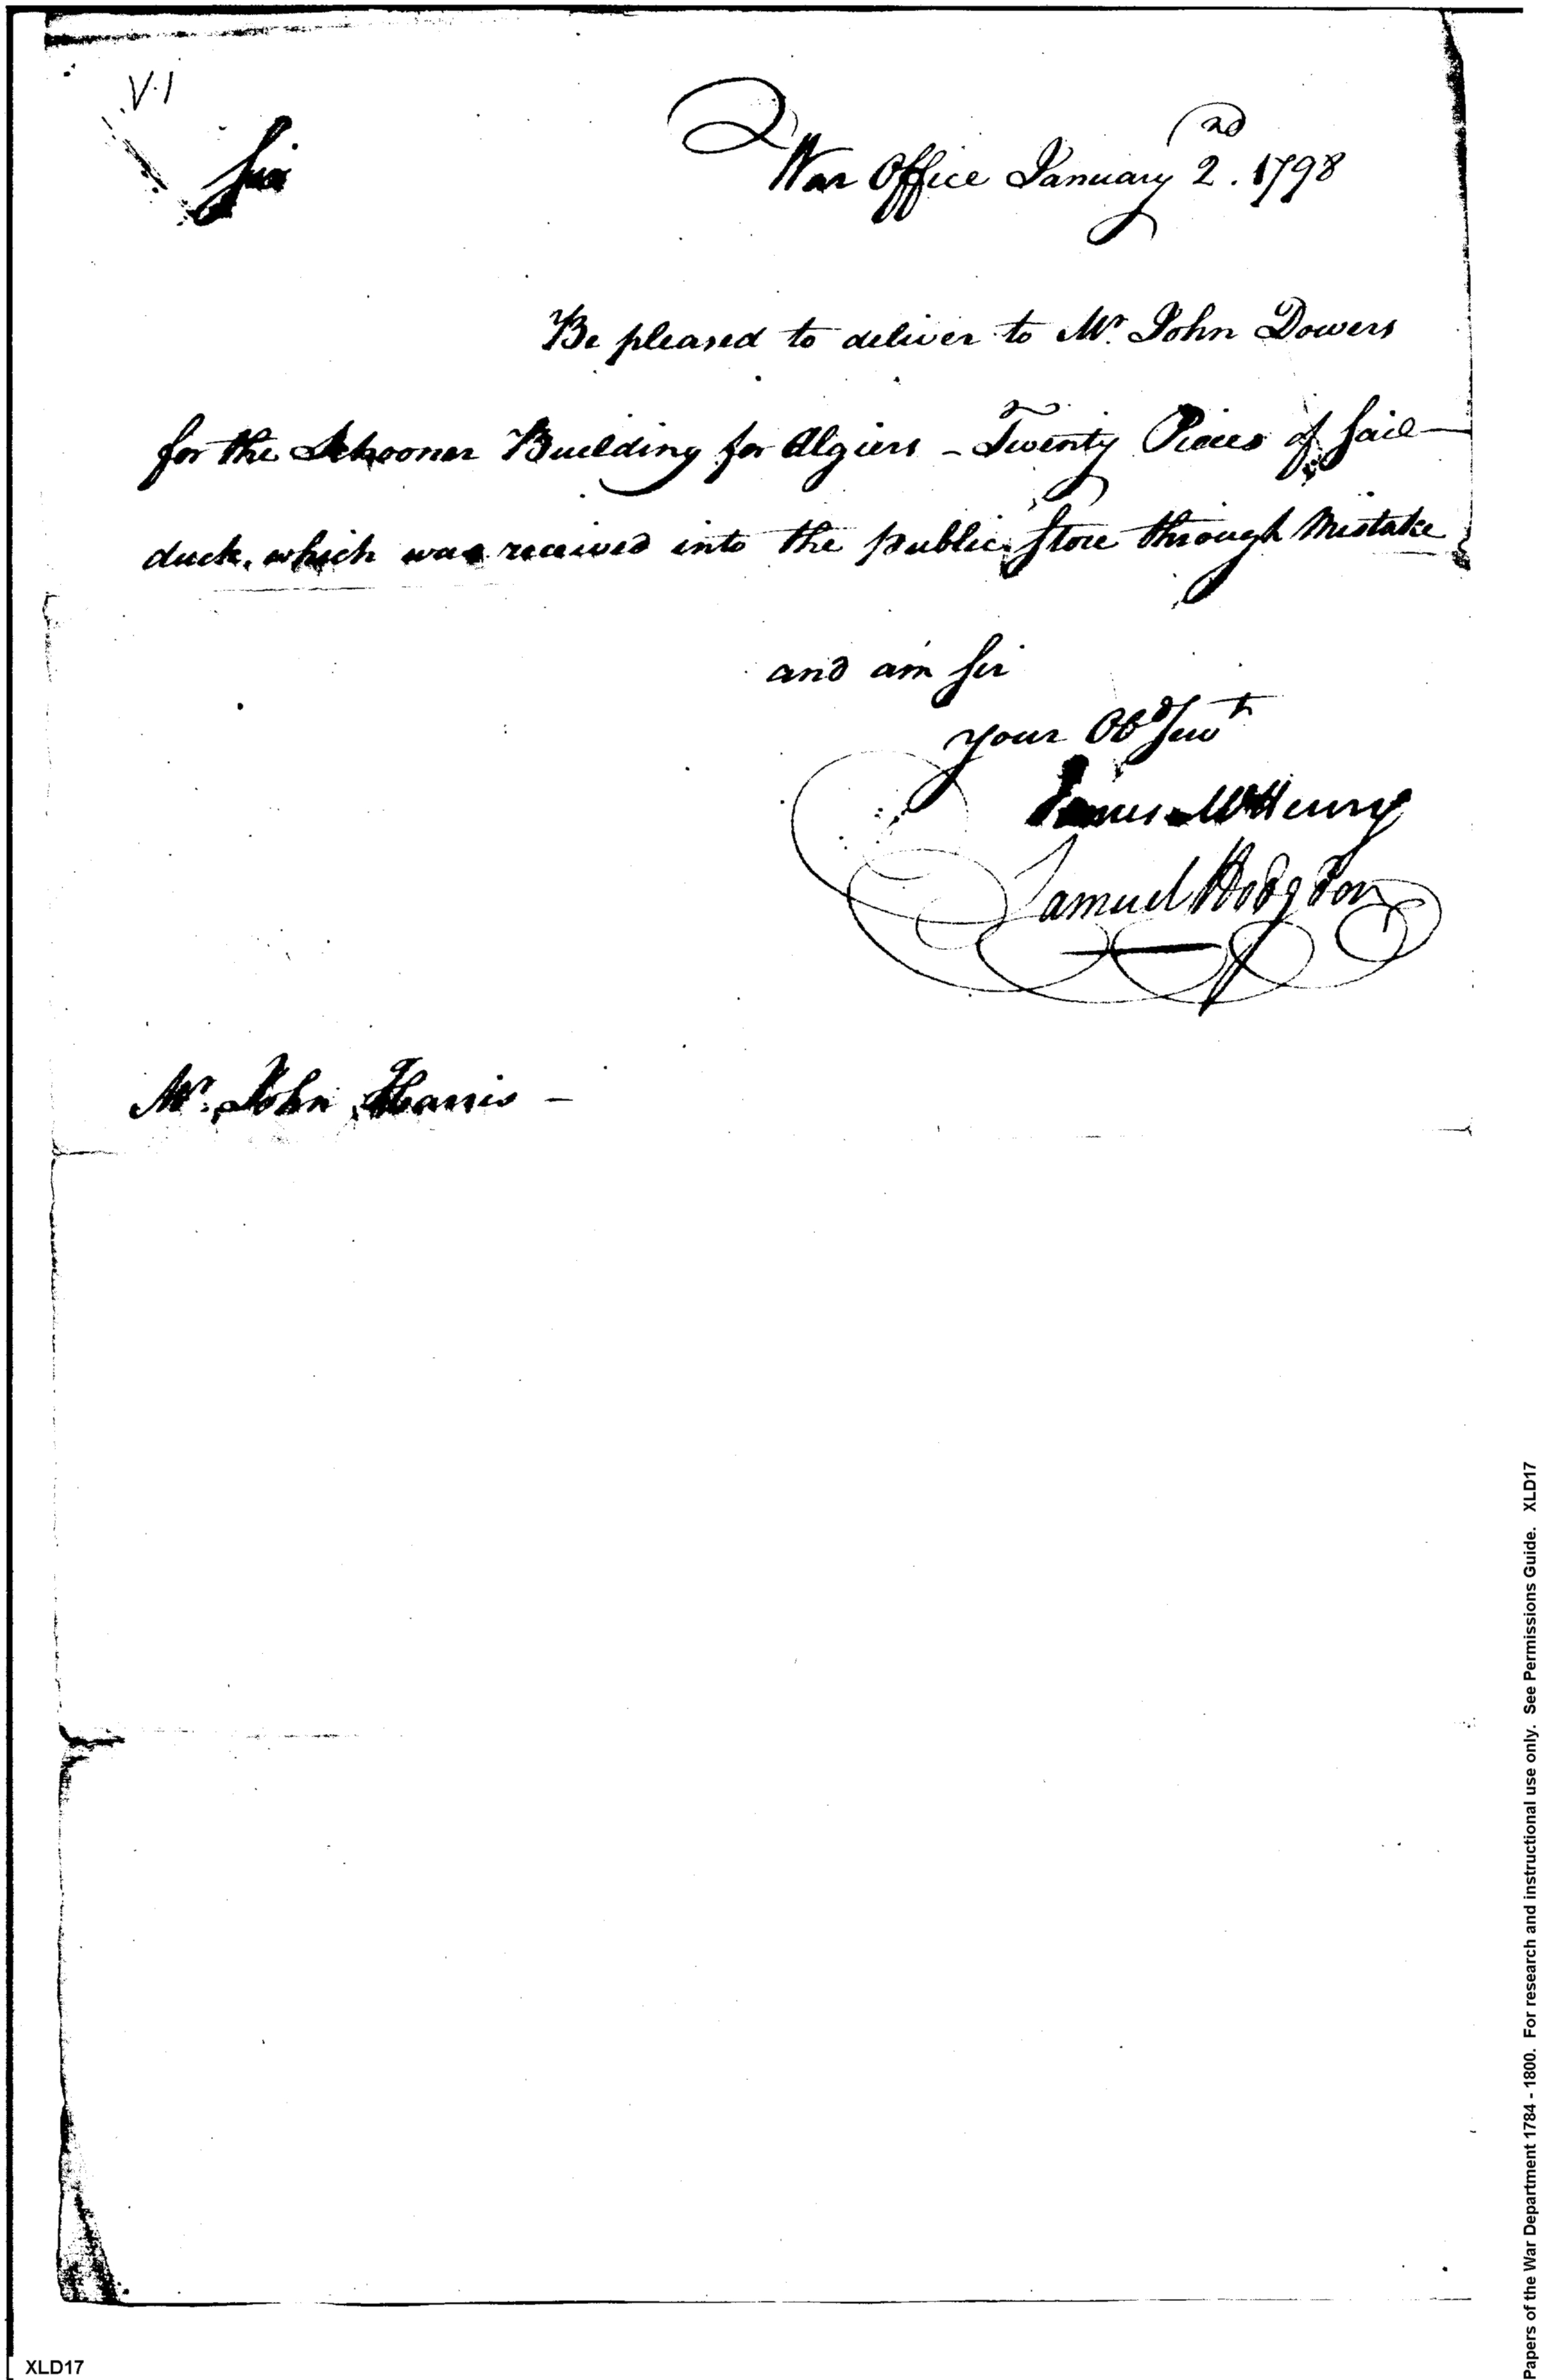 V.1
Sir
War Office January 2nd. 1798
Be pleased to deliver to Mr. John Dowers
for the Schooner Building for Algiers - Twenty Pieces of Sail
duck, which was received into the public Store through Mistake
and am Sir
your Obd Servt
James McHenry
Samuel Hodgdon
Mr. John Harris -
XLD17
Papers of the War Department 1784 - 1800. For research and instructional use only. See Permissions Guide. XLD17